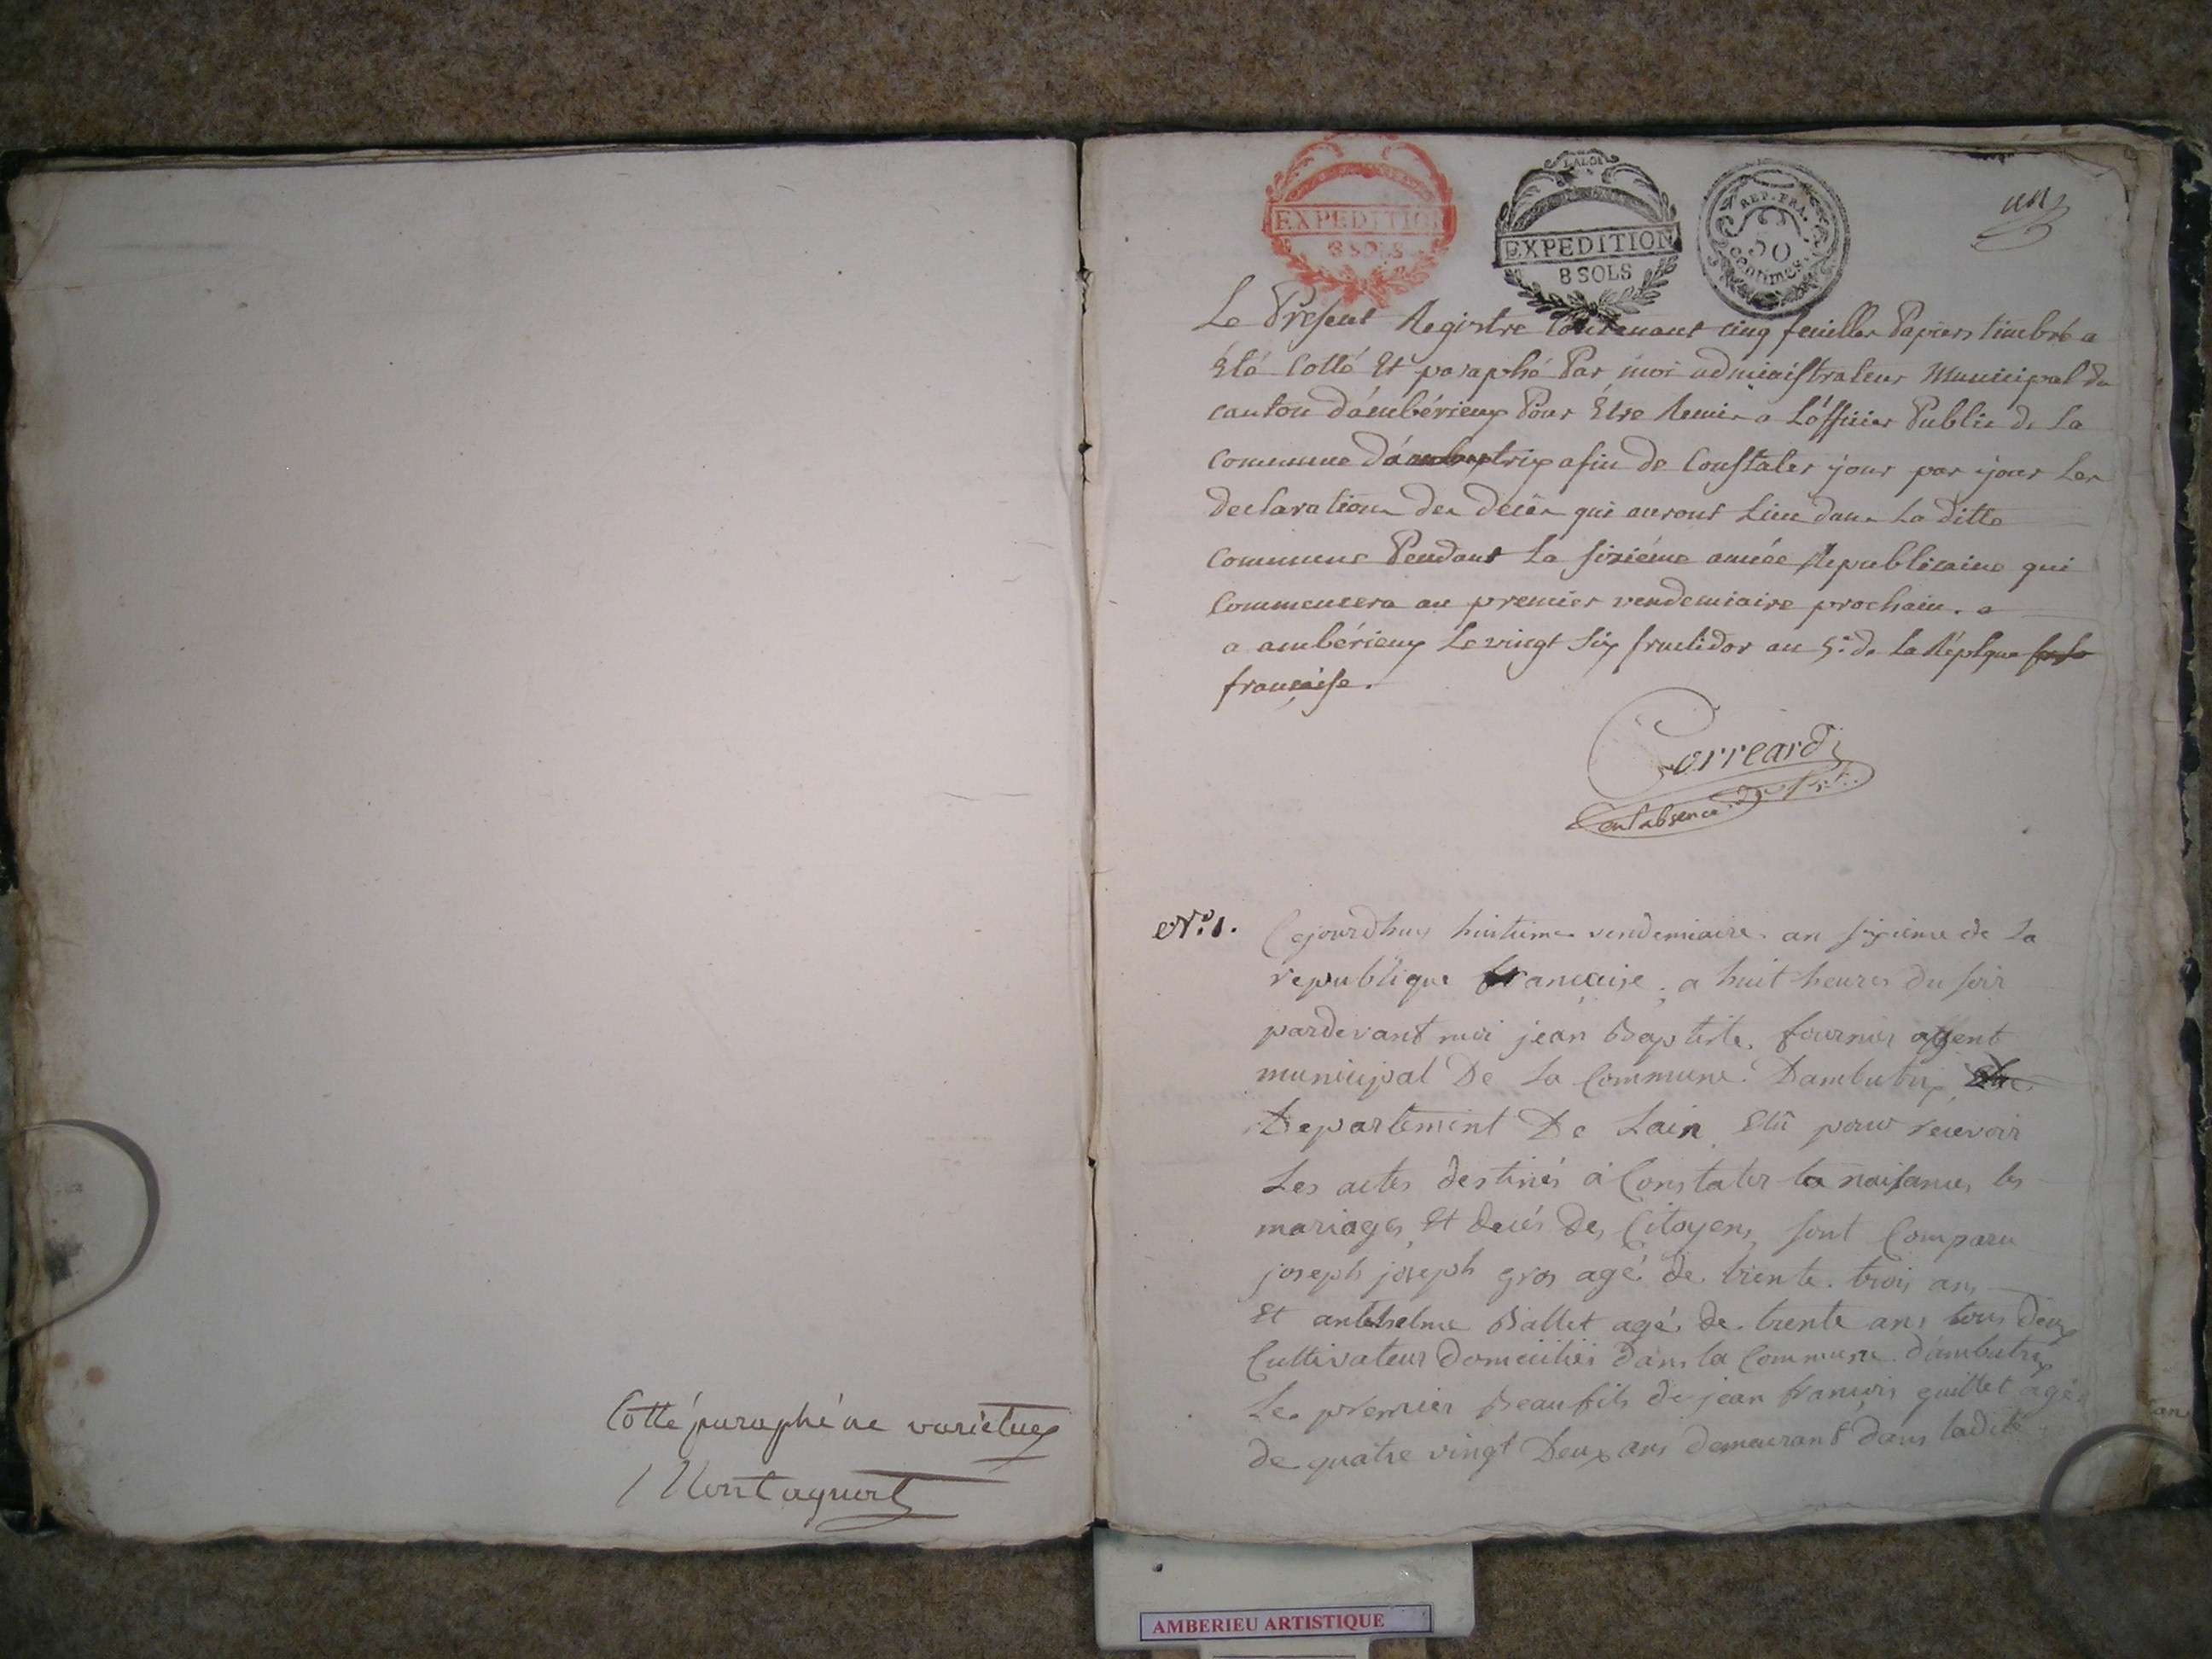 Cotté paraphé ne varietuf
Montagnort
EXPEDITION
8 SOLS
LA LOI
EXPEDITION
8 SOLS
REP. FRA.
50
centimes.
un
Le Présent Registre Contenant cinq feuilles Papiers timbré a
Été Cotté Et paraphé Par moi administrateur Municipal du
canton d'ambérieux Pour Etre Remis a L'officier Public de La
Commune d'ambutrix afin de Constater jour par jour Les
declarations des decès qui auront Lieu dans La ditte
Commune Pendant La sixiéme année Republicaine qui
Commencera au premier vendemiaire prochain. a
a ambérieux Le vingt six fructidor an 5e. de la Réplque
française.
Correard
en l'absence du Pt.
No. 1. Cejourdhuy huitieme vendemiaire an sixieme de La
republique française, a huit heures du soir
pardevant moi jean Baptiste fournier agent
municipal De La Commune Dambutrix
Departement De Lain Elû pour recevoir
Les actes destinés à Constater la naisance, les
mariages, Et decés Des Citoyens, sont Comparu
joseph joseph gros agé de trente trois ans
Et anthelme Ballet agé de trente ans tous deux
Cultivateur Domeciliés dans la Commune d'ambutrix
Le premier Beaufils de jean francois guillet agé
de quatre vingt Deux ans demeurant dans ladite
AMBERIEU ARTISTIQUE